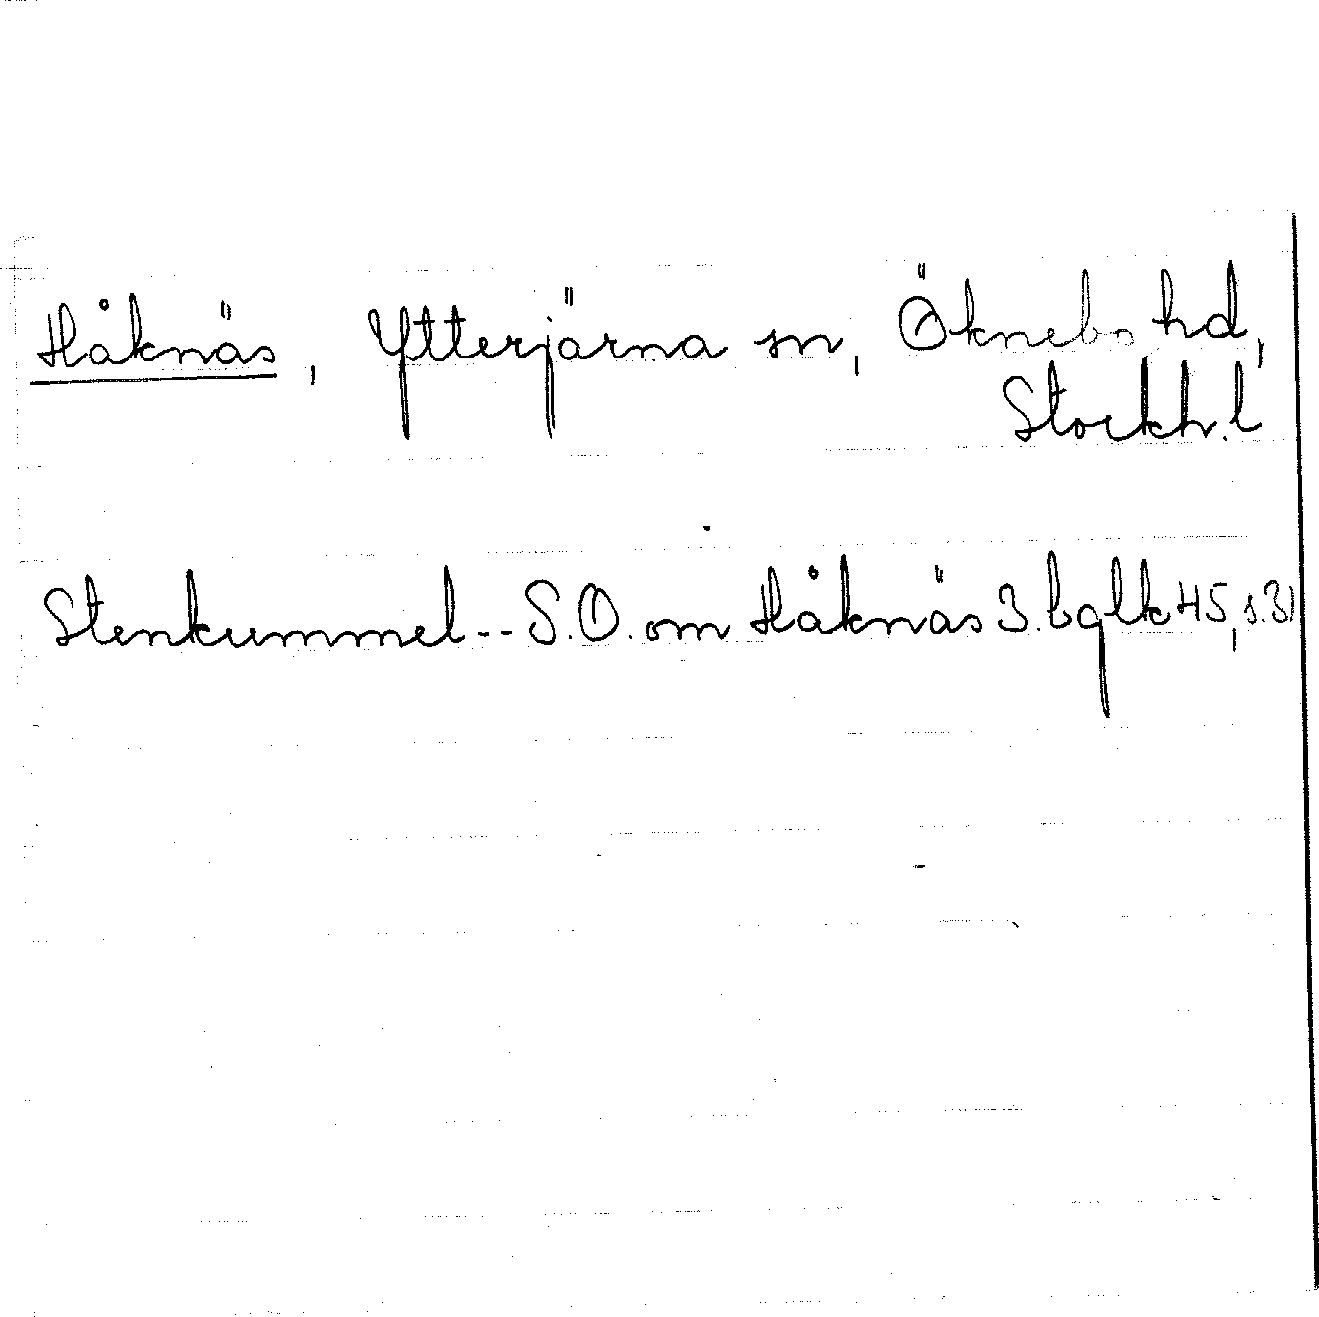 Håknäs, Ytterjärna sn, Öknebo hd,
Stockh. l
Stenkummel -- S.O. om Håknäs 3. bglk 45, s. 31